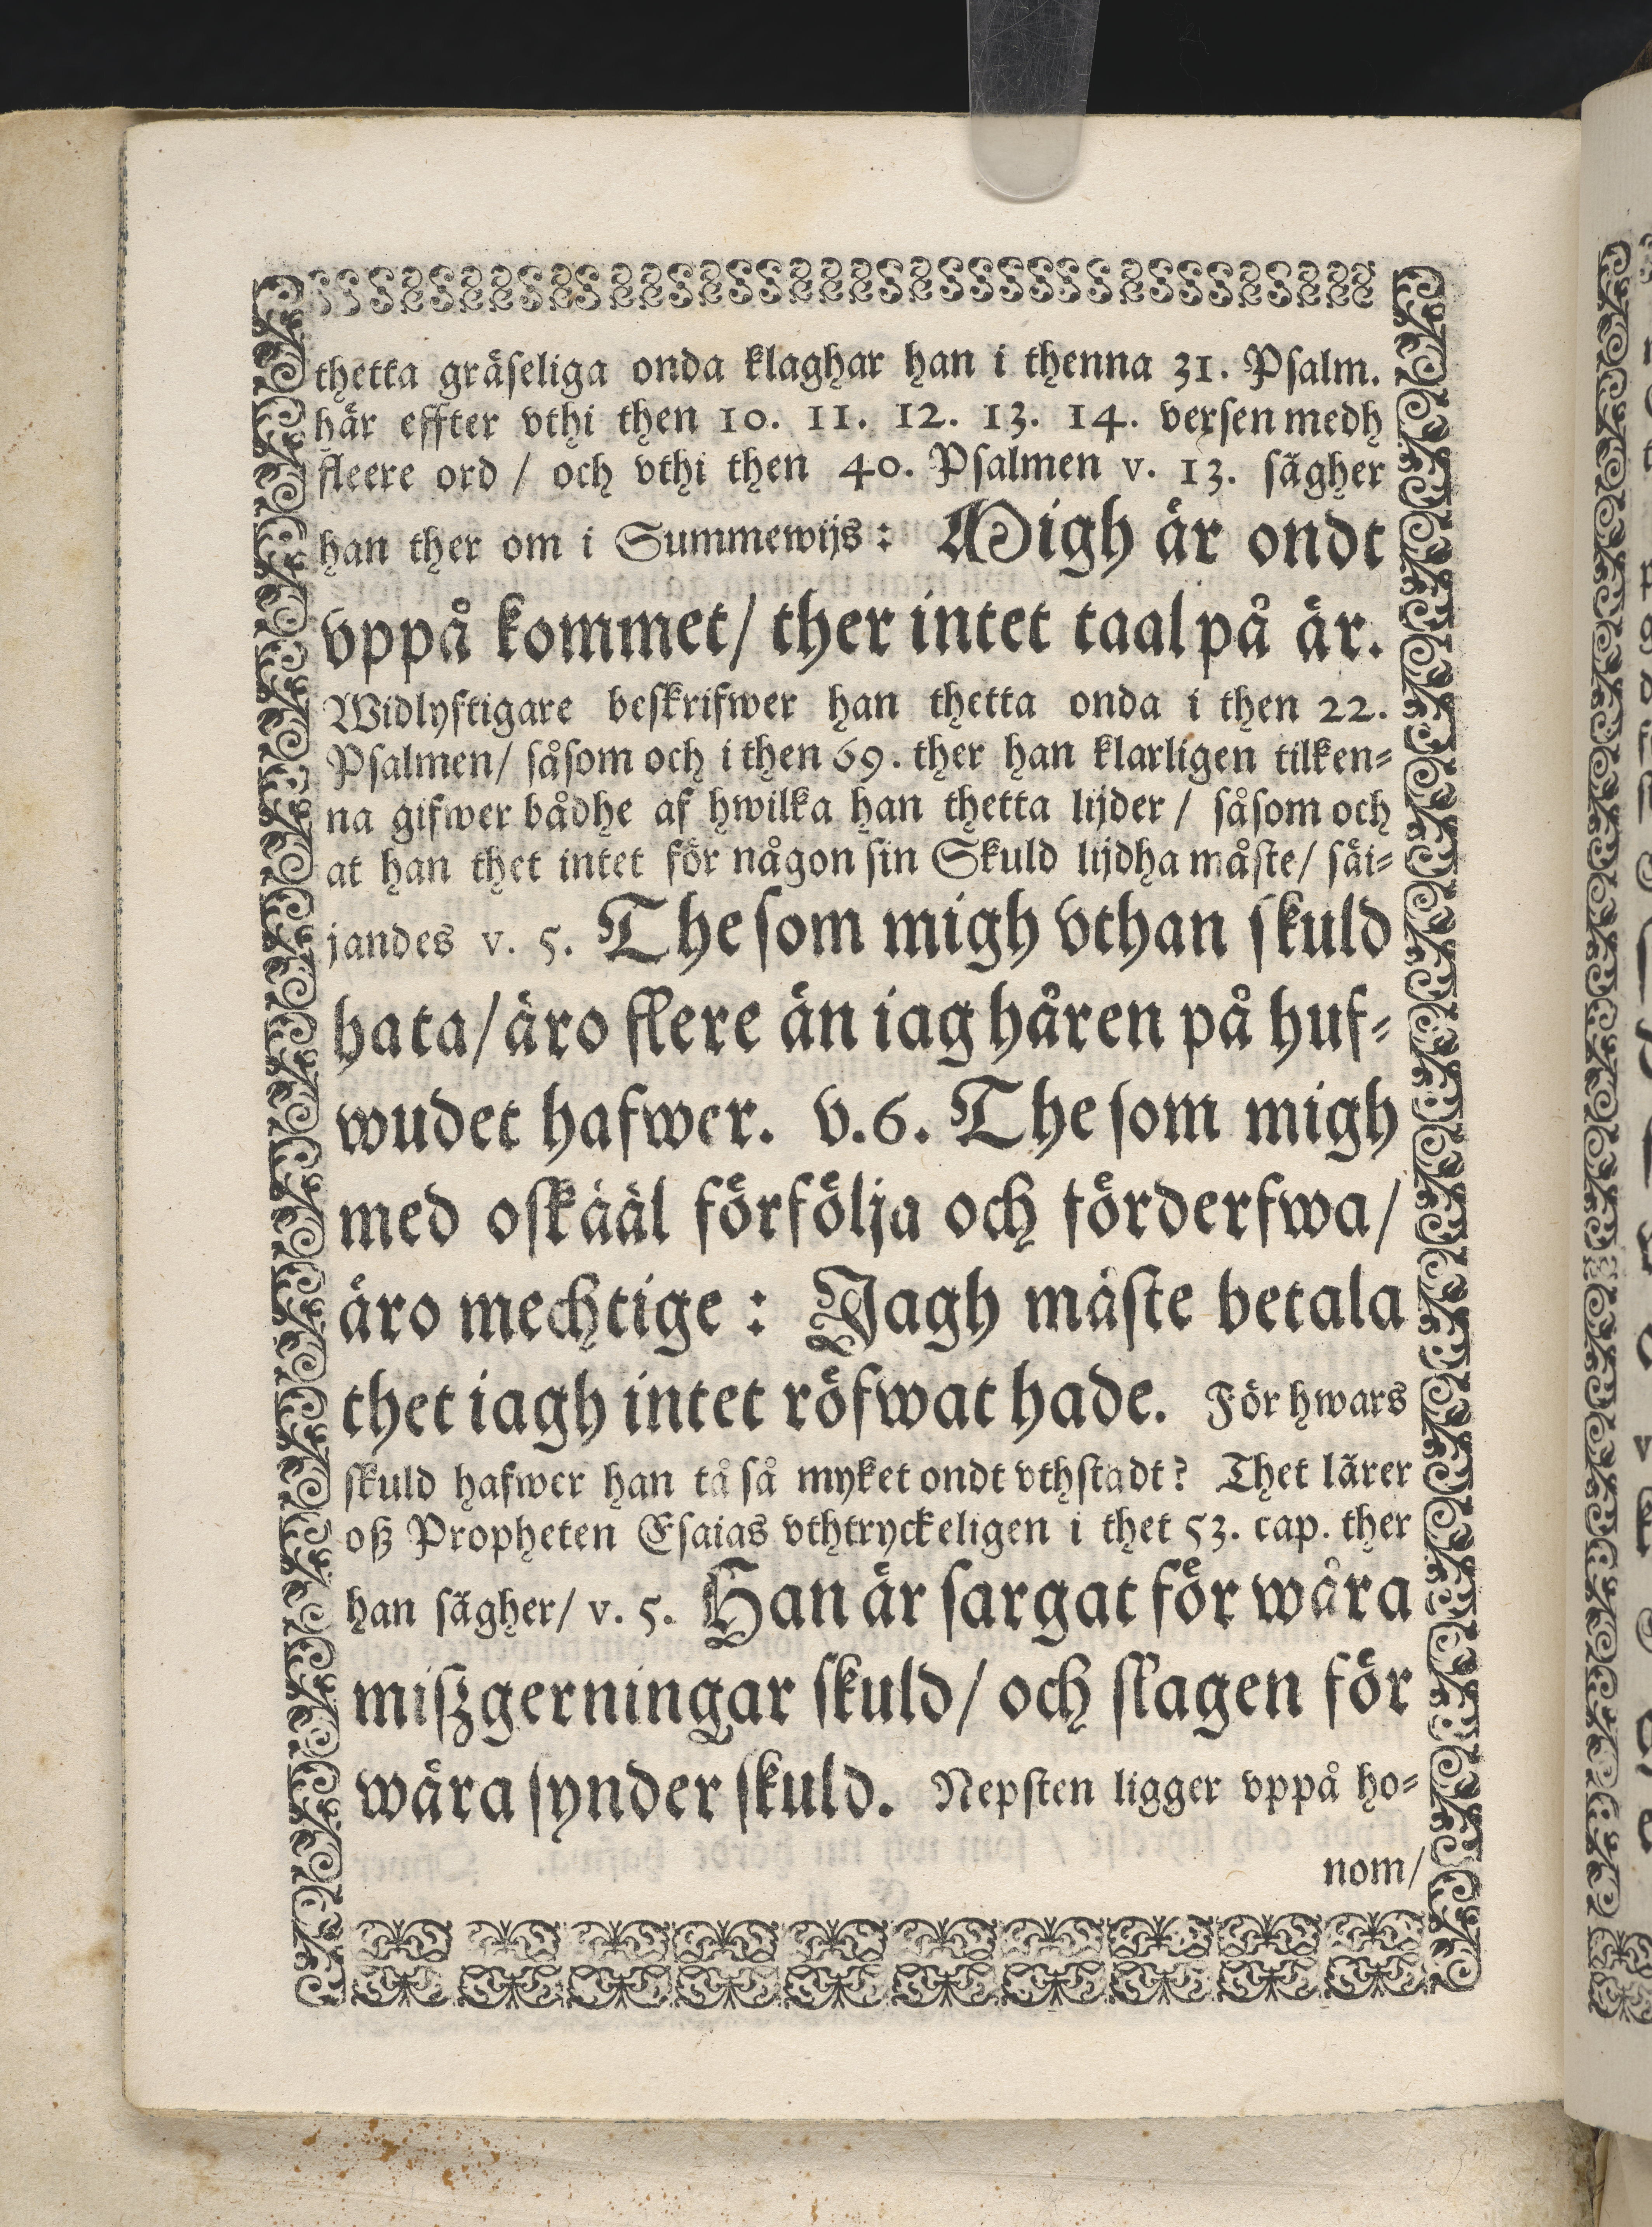 thetta gräseliga onda klaghar han i thenna 31. Psalm.
här effter vthi then 10. 11. 12. 13. 14. versen medh
fleere ord / och vthi then 40. Psalmen v. 13. sägher
han ther om i Summewijs: Migh är ondt
vppå kommet/ ther intet taal på är.
Widlyftigare beskrifwer han thetta onda i then 22.
Psalmen/ såsom och i then 69. ther han klarligen tilken-
na gifwer bådhe af hwilka han thetta lijder / såsom och
at han thet intet för någon sin Skuld lijdha måste/ säi-
jandes v. 5. The som migh vthan skuld
hata/ äro flere än iag håren på huf-
wudet hafwer. v. 6. The som migh
med oskääl förfölja och förderfwa/
äro mechtige: Jagh måste betala
thet iagh intet röfwat hade. För hwars
skuld hafwer han tå så myket ondt vthstadt? Thet lärer
oß Propheten Esaias vthtryckeligen i thet 53. cap. ther
han sägher/ v. 5. Han är sargat för wåra
mißgerningar skuld/ och slagen för
wåra synder skuld. Nepsten ligger vppå ho-
nom/